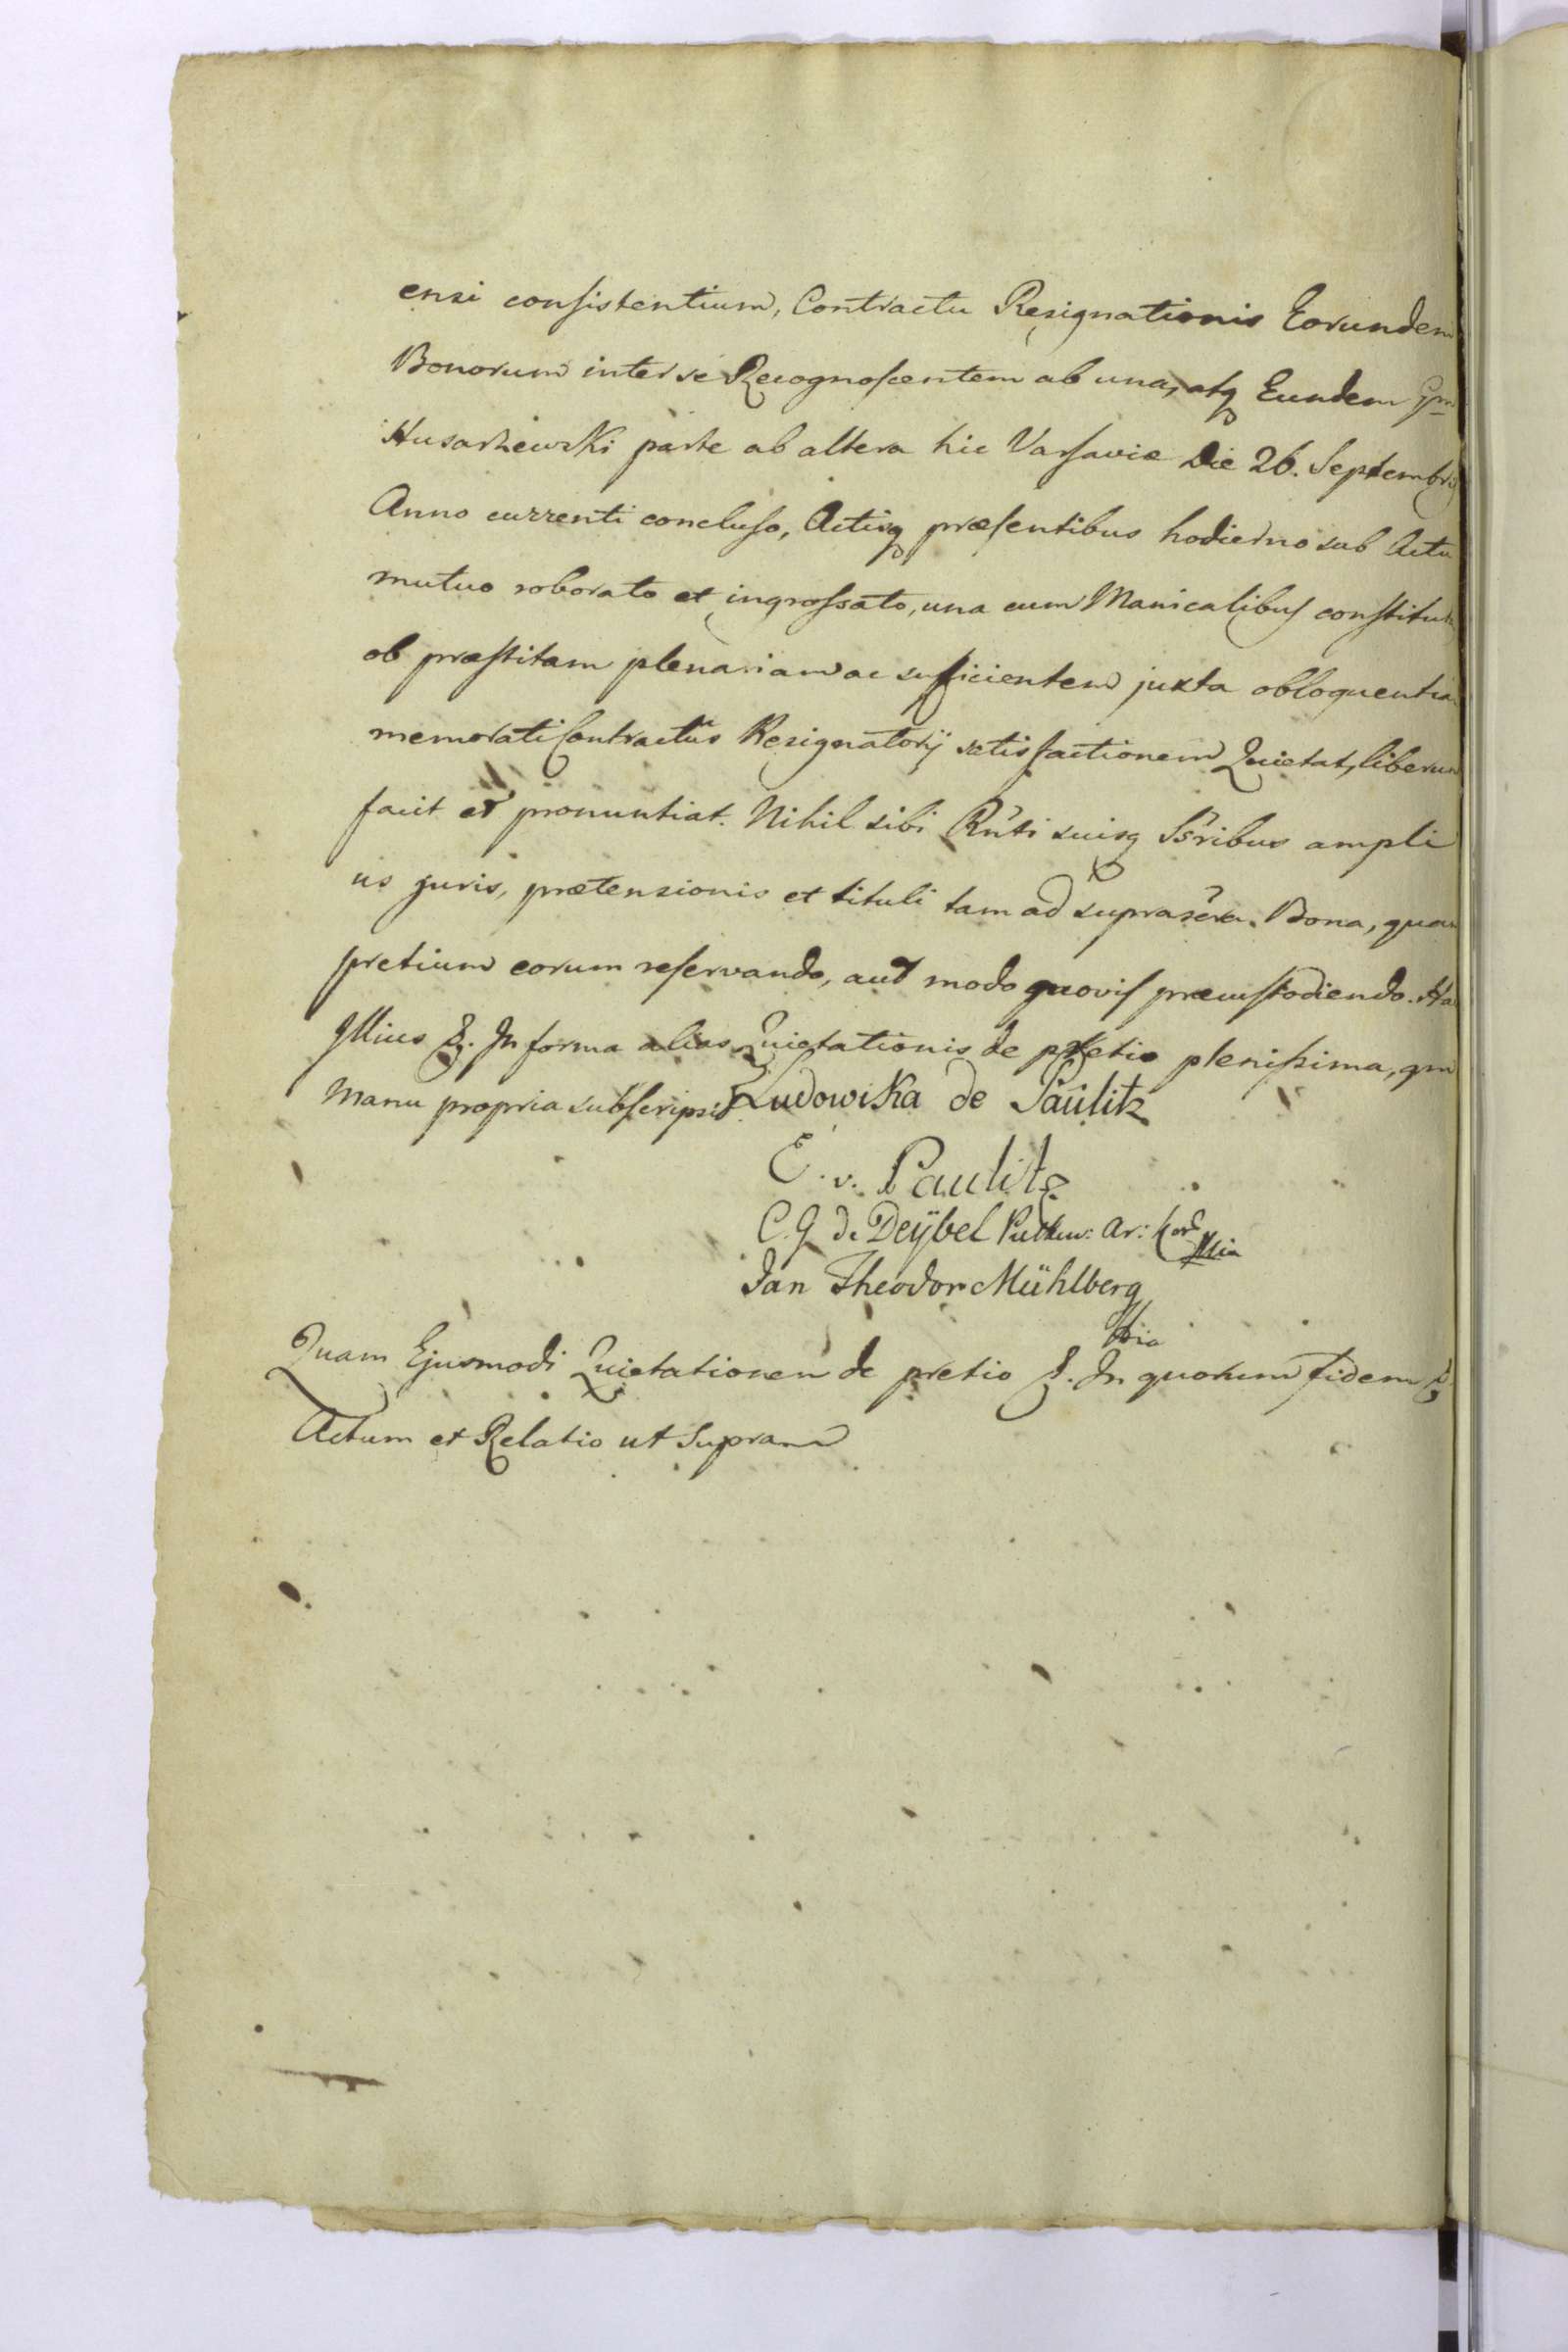 ensi consistentium, Contractu Resignationis Eorundem
Bonorum inter se Recognoscentem ab una, atq Eundem Gm
Husarzewski parte ab altera hic Varsaviæ Die 26. Septembris
Anno currenti concluso, Actisq præsentibus hodierno sub Actu
mutuo roborato et ingrossato, una cum Manicalibus constituto
ob præstitam plenariam ac sufficientem juxta obloquentiam
memorati Contractus Resignatorij satisfactionem Quietat, liberum
facit et pronuntiat. Nihil sibi Rñti suisq Ssribus ampli
us juris, prætensionis et tituli tam ad suprascra. Bona, quam
pretium eorum reservando, aut modo quovis præcustodiendo. Ha
Illius &. In forma alias Quietationis de pretio plenissima, qm
Manu propria subscripsit. Ludowika de Paulitz
E. v. Paulitz
C. G de Deÿbel Putkow: Ar: Kor
Jan Theodor Mühlberg
Quam Ejusmodi Quietationem de pretio &. In quorum fidem &
Actum et Relatio ut Supra